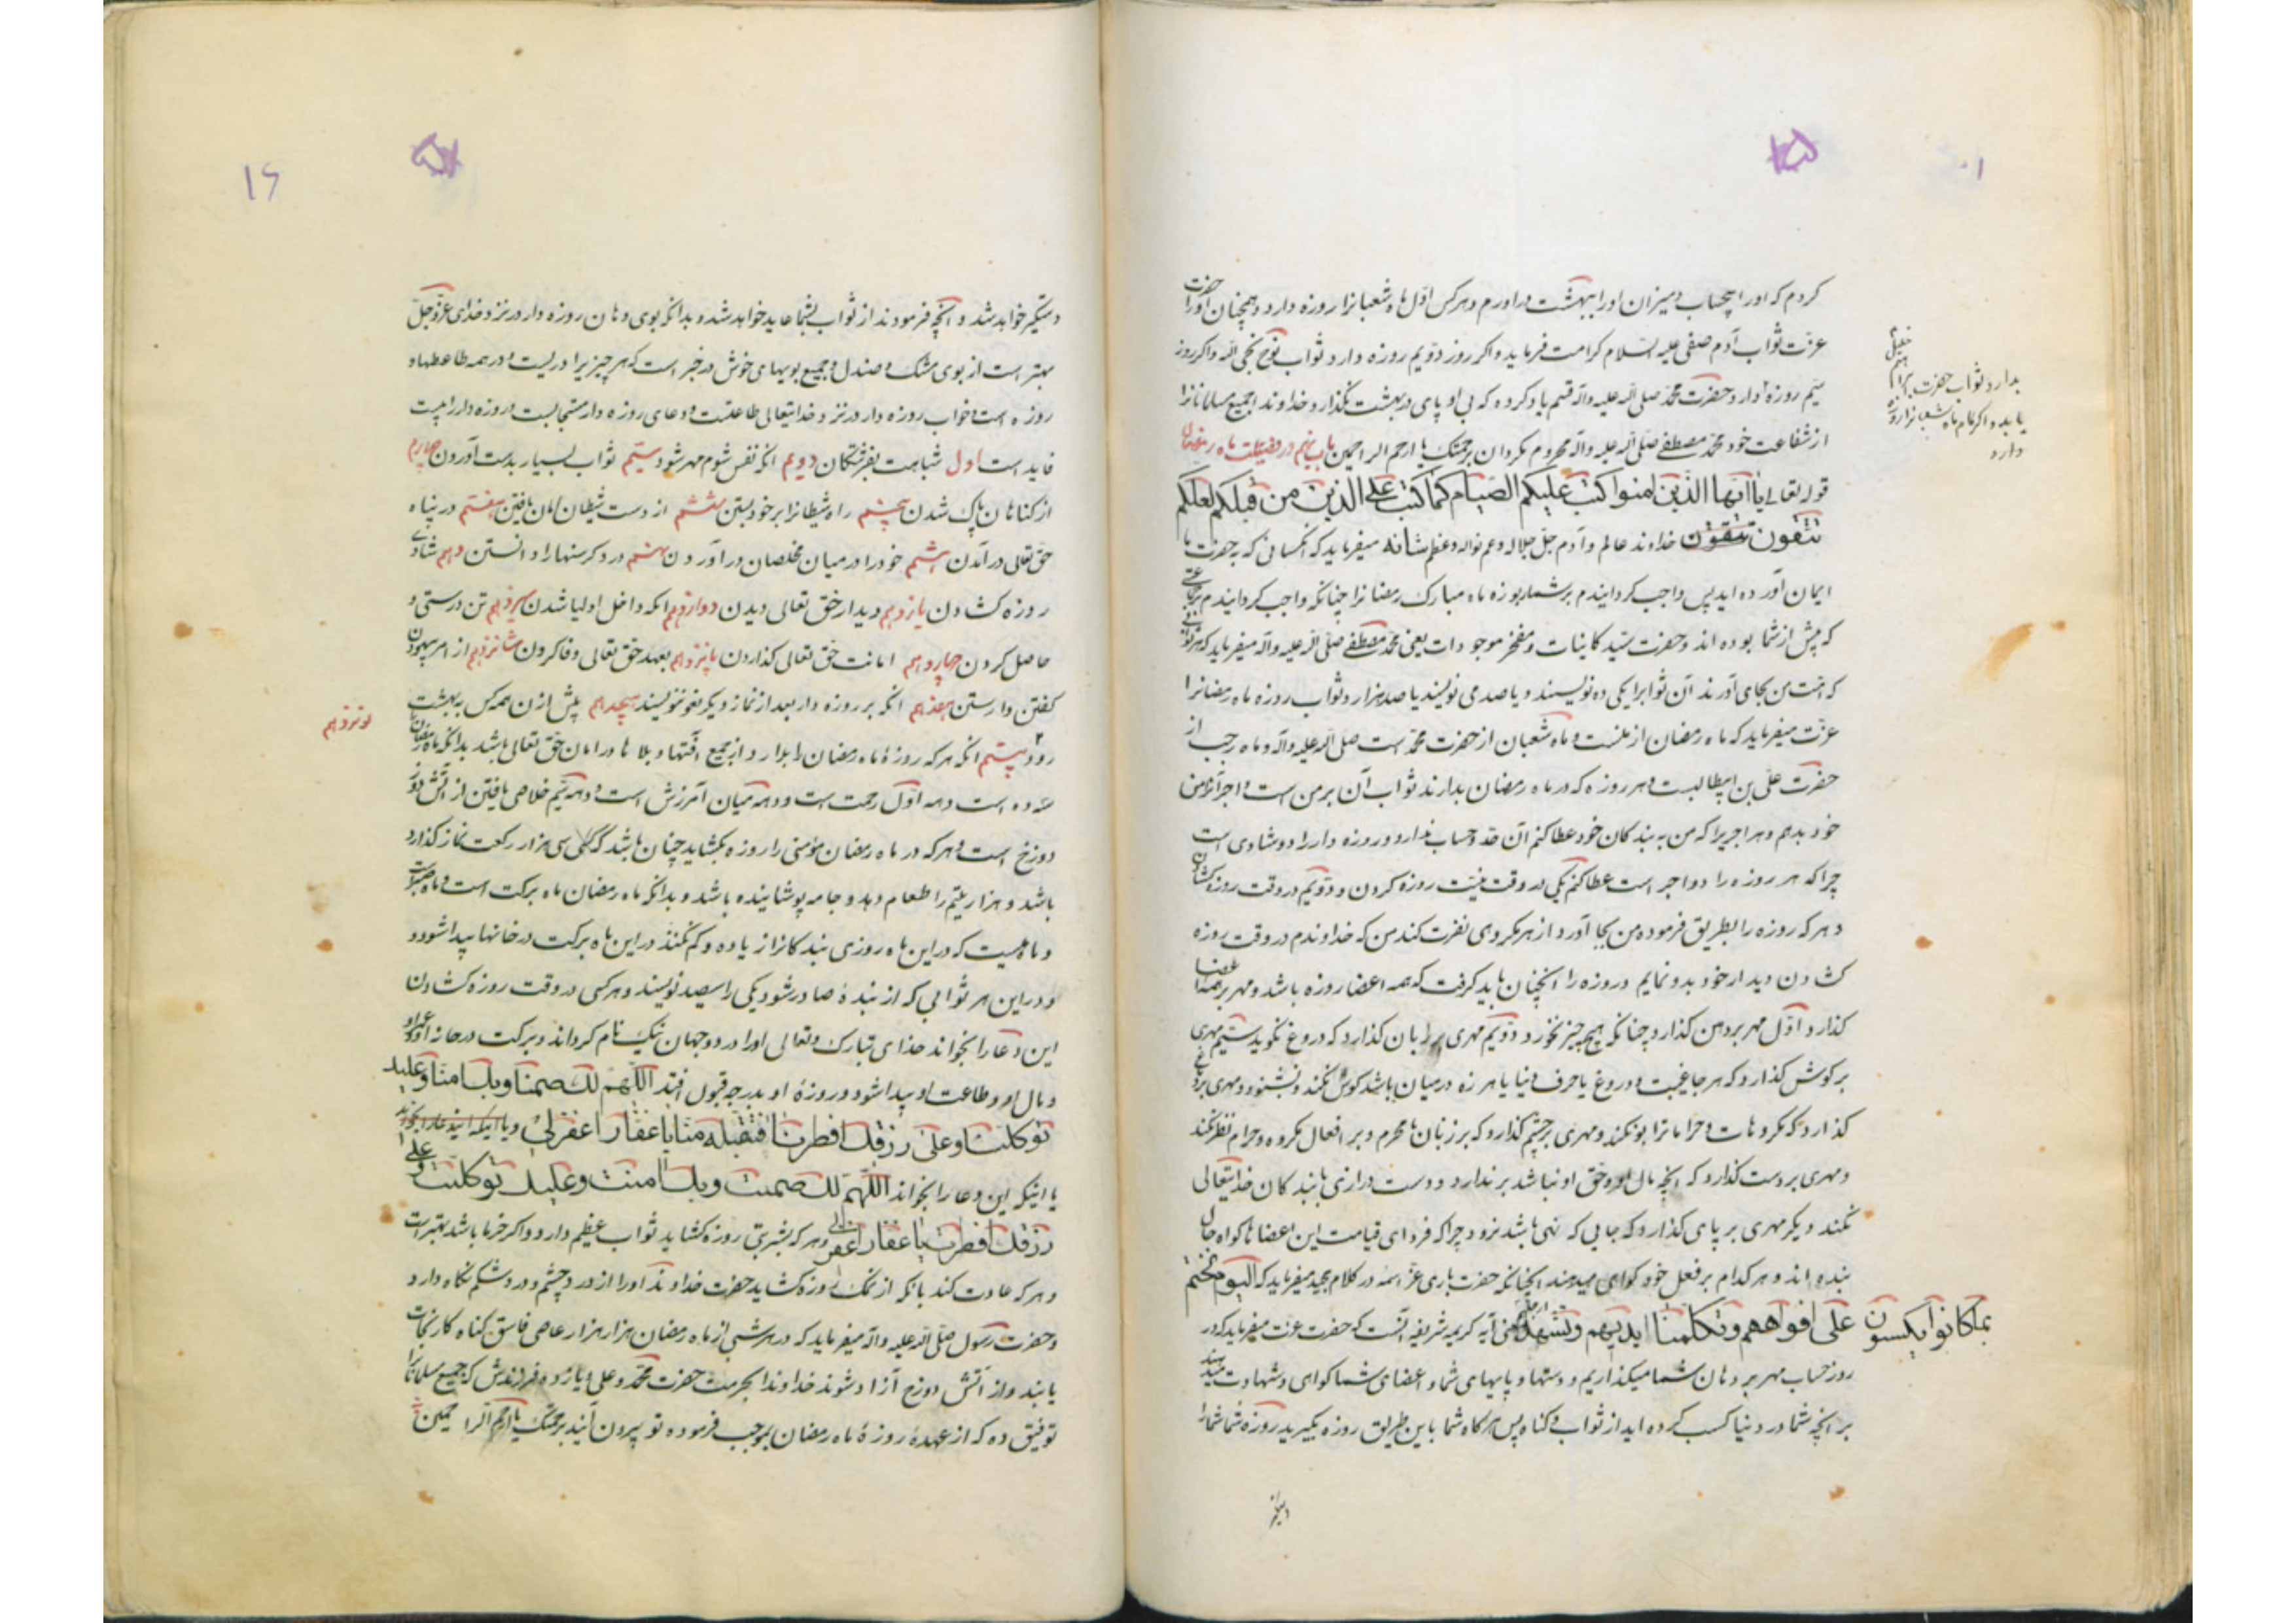 کردم که او را بیحساب و میزان او را ببهشت دراورم و هر کس اول ماه شعبانرا روزه دارد همچنان او را حضرت
عزت ثواب آدم صفی علیه السلام کرامت فرماید و اکر روز دویم روزه دارد ثواب نوح نجی الله و اکر روز
سیم روزه دارد حضرت محمد صلی الله علیه و آله قسم یاد کرده که بی او پای در بهشت نکذارد خداوندا جمیع مسلمانانرا
بدارد ثواب حضرت ابراهیم خلیل
یابد و اکر تمام ماه شعبانرا روزه
دارد
از شفاعت خود محمد مصطفی صلی الله علیه و آله محروم مکردان برحمتک یا ارحم الراحمین باب پنجم در فضیلت ماه رمضان
قوله تعالی یا ایها الذین امنوا کتب علیکم الصیام کما کتب علی الذین من قبلکم لعلکم
تتقون خداوند عالم و آدم جل جلاله و عم نواله و عظم شانه میفرماید که انکسانی که به حضرت ما
ایمان آورده اید پس واجب کردانیدم بر شما روزه ماه مبارک رمضانرا چنانکه واجب کردانیدم
که پیش از شما بوده اند و حضرت سید کاینات و مفخر موجودات یعنی محمد مصطفی صلی الله علیه و آله میفرماید که هر ثوابی
که امت من بجای آورند آن ثوابرا یکی ده نویسند و یا صد می نویسند یا صد هزار و ثواب روزه ماه رمضانرا
عزت میفرماید که ماه رمضان از منست و ماه شعبان از حضرت محمد است صلی الله علیه و آله و ماه رجب از
حضرت علی بن ابیطالبست و هر روزه که در ماه رمضان بدارند ثواب آن بر من است و اجر آنرا من
خود بدهم و هر اجریرا که من به بندکان خود عطا کنم آن حد و حساب ندارد و روزه دار را دو شادی است
چرا که هر روزه را دو اجر است عطا کنم یکی در وقت نیت روزه کردن و دویم در وقت روزه کشادن
و هر که روزه را بطریق فرموده من بجا آورد از هر مکروهی نفرت کند من که خداوندم در وقت روزه
کشادن دیدار خود بدو نمایم و روزه را انچنان باید کرفت که همه اعضا روزه باشد و مهر بر همه اعضا
کذارد اول مهر بر دهن کذارد چنانکه هیچ چیز نخورد و دویم مهری بر زبان کذارد که دروغ نکوید سیم مهری
بر کوش کذارد که هر جا غیبت و دروغ یا حرف دنیا یا هرزه در میان باشد کوش نکند و نشنود و مهری بر
کذارد که مکروهات و حراماترا بو نکند و مهری بر چشم کذارد که بر زنان نامحرم و بر افعال مکروه و حرام نظر نکند
و مهری بر دست کذارد که انچه مال او و حق او نباشد بر ندارد و دست درازی با بندکان خدایتعالی
نکند و دیکر مهری بر پای کذارد که جایی که نهی باشد نرود چرا که فردای قیامت این اعضاها کواه حال
بنده اند و هر کدام بر فعل خود کواهی میدهند انچنانکه حضرت باری عز اسمه در کلام مجید میفرماید که الیوم نختم
علی افواههم و تکلمنا ایدیهم و تشهد ارجلهم بما کانوا یکسبون معنی آیه کریمه شریفه آنست که حضرت عزت میفرماید که در
روز حساب مهر بر دهان شما میکذاریم و دستها و پایهای شما و اعضای شما کواهی و شهادت میدهند
بر انچه شما در دنیا کسب کرده اید از ثواب و کناه پس هر کاه شما باین طریق روزه بکیرید روزه شما شما را
۱۶
دستکیر خواهد شد و انچه فرمودند از ثواب بشما عاید خواهد شد و بدانکه بوی دهان روزه دار در نزد خدای عز و جل
بهتر است از بوی مشک و صندل و جمیع بویهای خوش در خبر است که هر چیزیرا دریست و در همه طاعتها و
روزه است و خواب روزه دار در نزد خدایتعالی طاعتست و دعای روزه دار مستجابست و روزه دار را بیست
فایده است اول شباهت بفرشتکان دویم انکه نفس شوم مهر شود سیم ثواب بسیار بدست آوردن چهارم
از کناهان پاک شدن پنجم راه شیطانرا بر خود بستن ششم از دست شیطان امان یافتن هفتم در پناه
حق تعالی در آمدن هشتم خود را در میان مخلصان در آوردن نهم درد کرسنها را دانستن دهم شادی
روزه کشادن یازدهم دیدار حق تعالی دیدن دوازدهم انکه داخل اولیا شدن سیزدهم تن درستی و
حاصل کردن چهاردهم امانت حق تعالی کذاردن پانزدهم بعهد حق تعالی وفا کردن شانزدهم از امر بیهوده
کفتن وارستن هفدهم انکه بر روزه دار بعد از نماز دیکر لغو ننویسند هیجدهم پیش از همه کس به بهشت
نوزدهم
رود بیستم انکه هر که روزهٔ ماه رمضان را بدارد از جمیع آفتها و بلاها در امان حق تعالی باشد بدانکه ماه رمضان
سه ده است دهه اول رحمت است و دهه میان آمرزش است و دهه سیم خلاصی یافتن از آتش
دوزخ است و هر که در ماه رمضان مؤمنی را روزه بکشاید چنان باشد که کوئی سی هزار رکعت نماز کذارده
باشد و هزار یتیم را طعام دهد و جامه پوشانیده باشد و بدانکه ماه رمضان ماه برکت است و ماه صبر است
و ماهیست که در این ماه روزی بندکانرا زیاده و کم نکنند در این ماه برکت در خانها پیدا شود و
و در این هر ثوابی که از بندهٔ صادر شود یکی را سیصد نویسند و هر کسی در وقت روزه کشادن
این دعا را بخواند خدای تبارک و تعالی او را در دو جهان نیک نام کرداند و برکت در خانه او و عمر او
و مال او و طاعت او پیدا شود و روزهٔ او بدرجه قبول افتد اللهم لک صمنا و بک امنا و علیک
توکلنا و علی رزقک افطرنا فتقبله منا یا غفار اغفر لی و یا اینکه این دعا را بخواند
یا اینکه این دعا را بخواند اللهم لک صمت و بک امنت و علیک توکلت و علی
رزقک افطرت یا غفار اغفر لی و هر که بشربتی روزه کشاید ثواب عظیم دارد و اکر خرما باشد بهتر است
و هر که عادت کند بانکه از نمک روزه کشاید حضرت خداوند او را از درد چشم و درد شکم نکاه دارد
و حضرت رسول صلی الله علیه و آله میفرماید که در هر شبی از ماه رمضان هزار هزار عاصی فاسق کناه کار نجات
یابند و از آتش دوزخ آزاد شوند خداوندا بحرمت حضرت محمد و علی و یازده فرزندش که جمیع مسلمانانرا
توفیق ده که از عهدهٔ روزهٔ ماه رمضان بموجب فرموده تو بیرون آیند برحمتک یا ارحم الراحمین